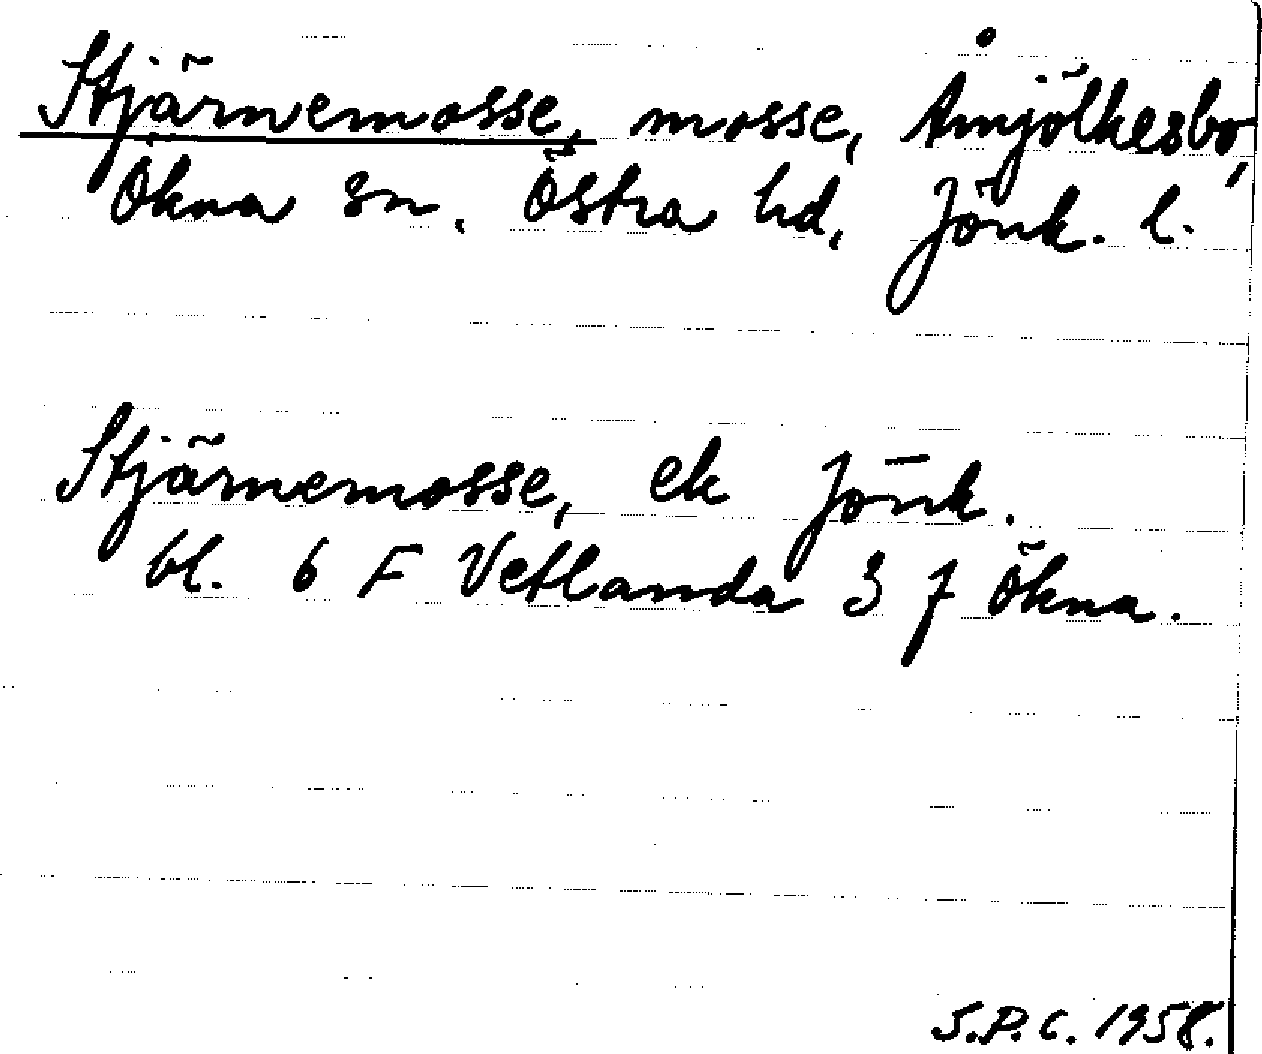 Stjärnemosse, mosse, Åmjölkesbo,
Ökna sn. Östra hd, Jönk. l.
Stjärnemosse, ek Jönk.
bl. 6 F Vetlanda 3 f Ökna.
S.P.C. 1958.